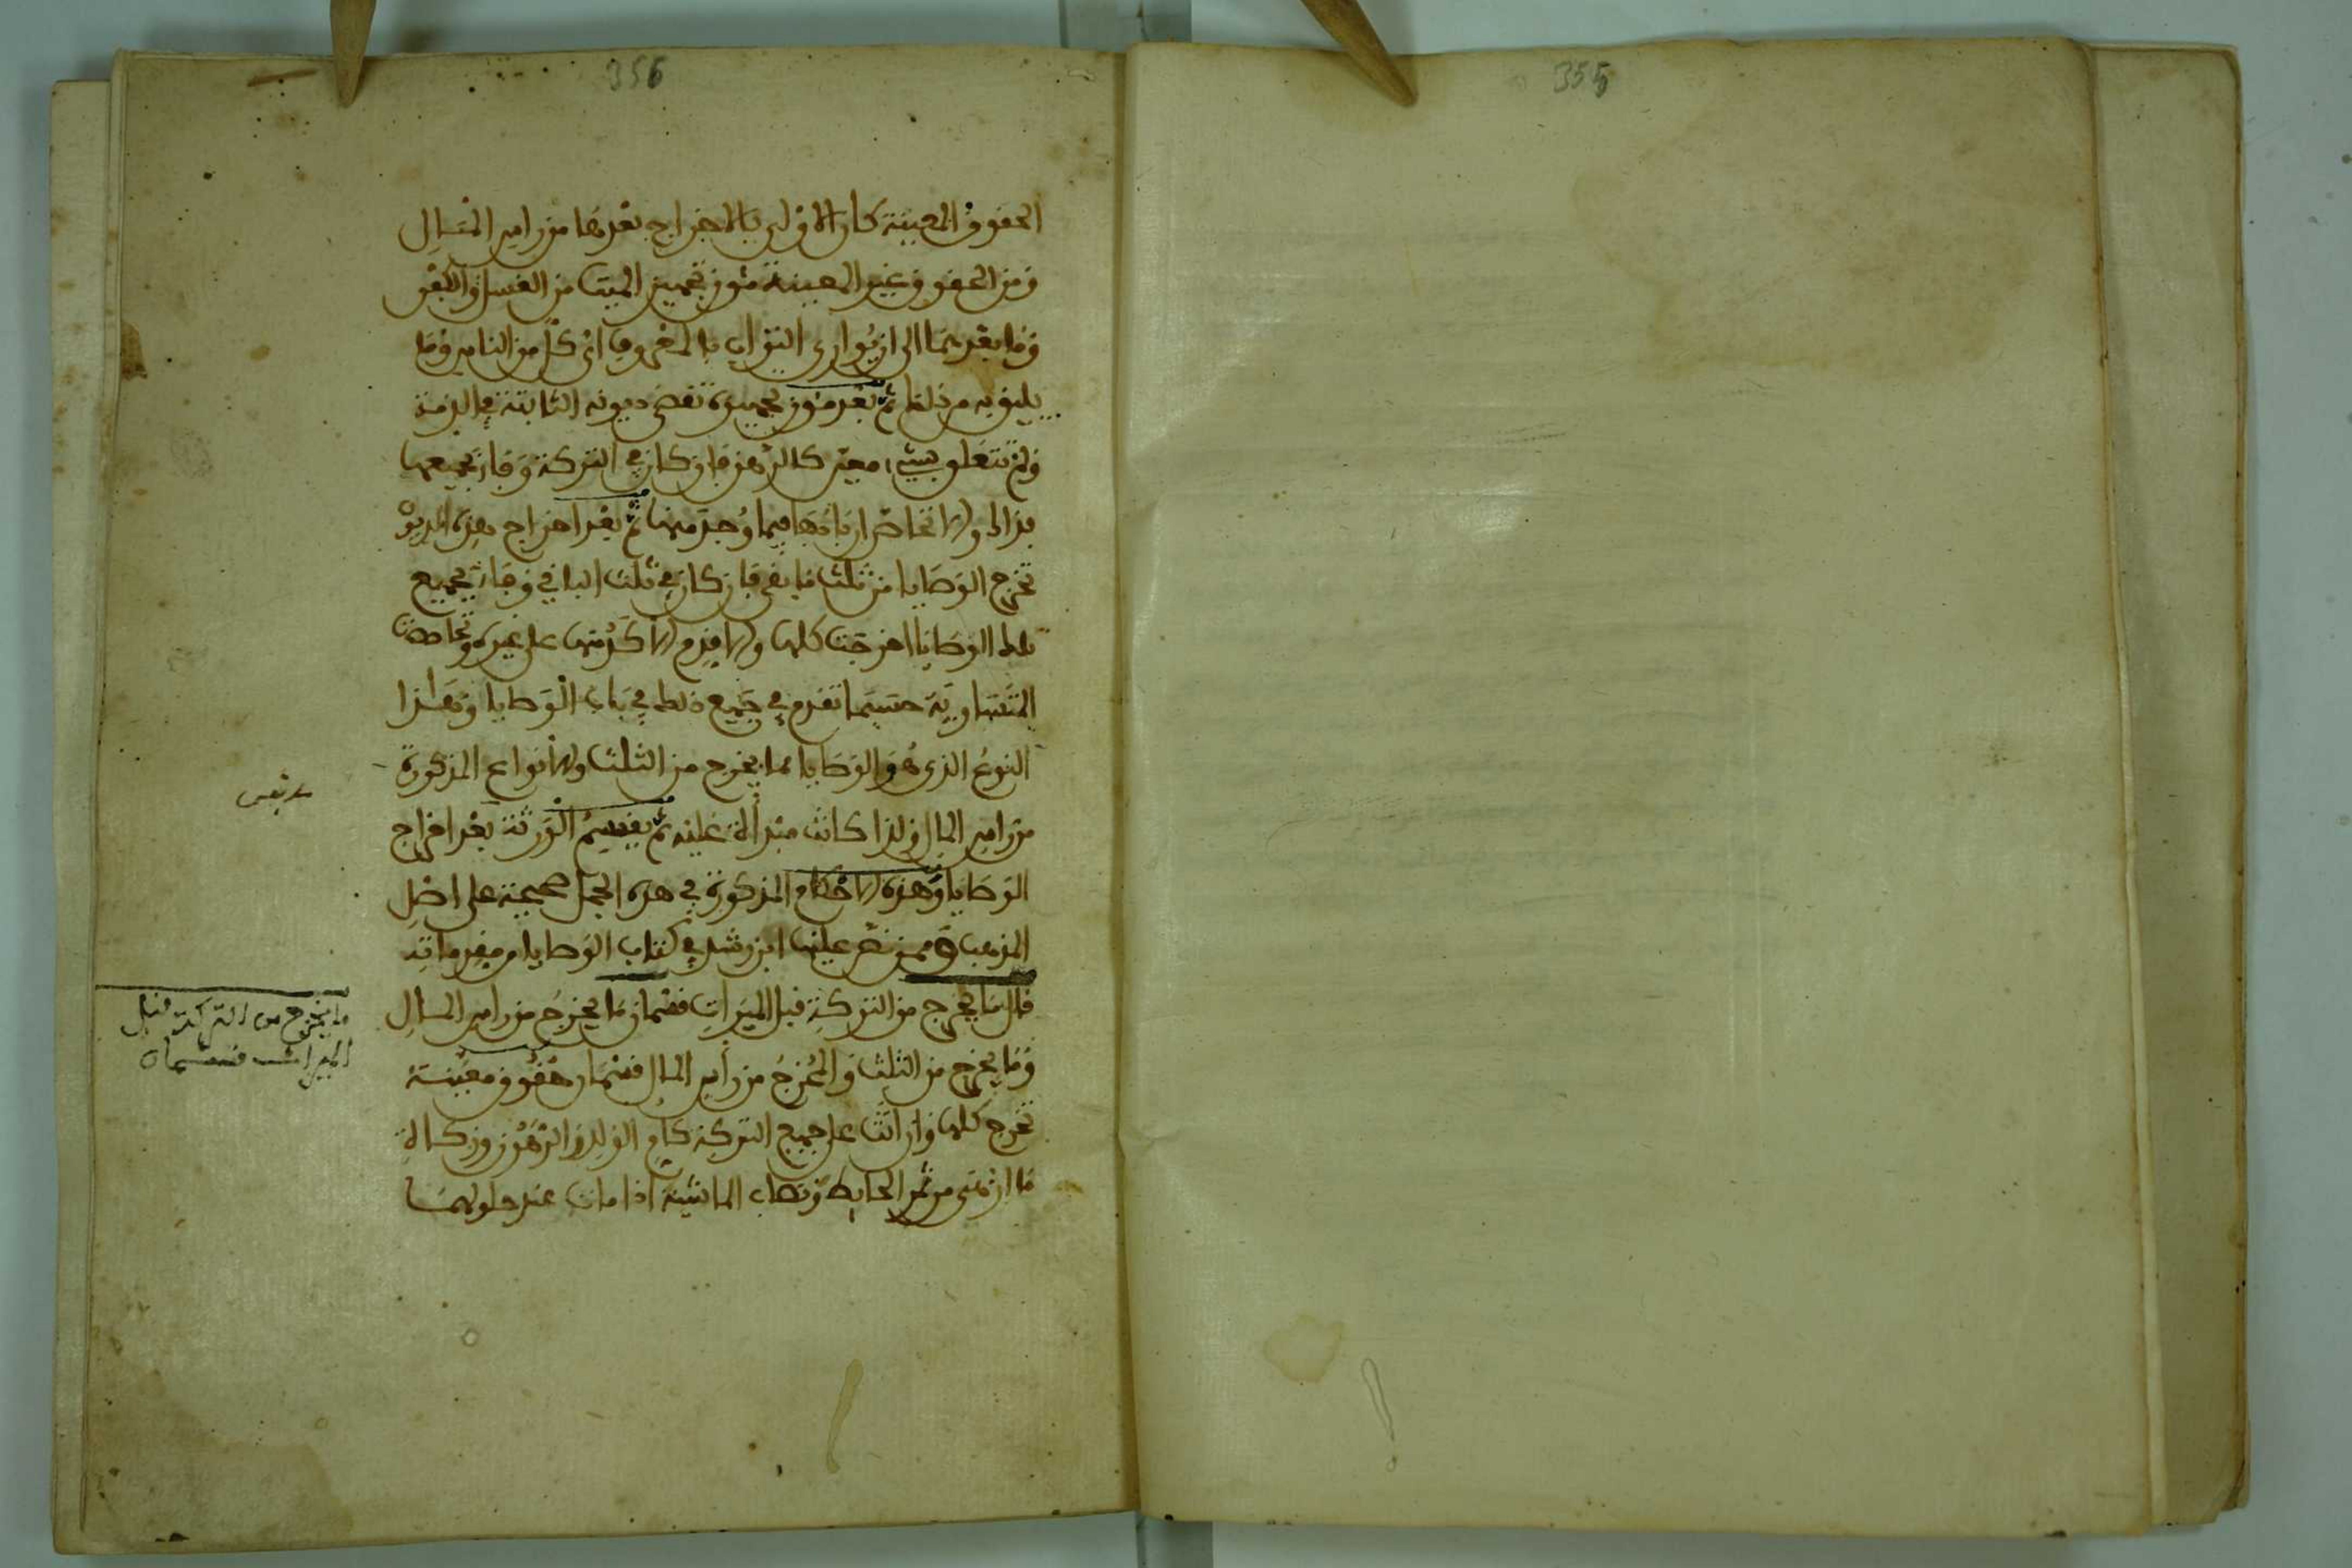 355
356
الحقوق المعينة كان الاولى بالاخراج بعدها من راس المال
ومن الحقوق غير المعينة مئون تجهيز الميت من الغسل والكفن
وما بعدهما الى ان يوارى التراب بالمعروف اى كل من الناس وما
يليق به من ذلك ثم بعد مئون تجهيزه تقضى ديونه الثابتة في الذمة
ولم تتعلق بشيء معين كالرهن فان كان في التركة وفاء بجميعها
فذاك والا تحاص اربابها فيما وجد منها ثم بعد اخراج هذه الديون
تخرج الوصايا من ثلث ما بقي فان كان في ثلث الباقي وفاء بجميع
تلك الوصايا اخرجت كلها والا قدم الاكد منها على غيره وتحاصت
المتساوية حسبما تقدم في جميع ذلك في باب الوصايا وهذا
النوع الذي هو الوصايا مما يخرج من الثلث والانواع المذكورة
من راس المال ولذا كانت مبدأة عليه ثم يقسم الورثة بعد اخراج
الوصايا وهذه الاحكام المذكورة في هذه الجمل صحيحة على اصل
المذهب وممن نص عليها ابن رشد في كتاب الوصايا من مقدماته
قال ما يخرج من التركة قبل الميراث قسمان ما يخرج من راس المال
وما يخرج من الثلث والمخرج من رأس المال قسمان حقوق معينة
تخرج كلها وان اتت على جميع التركة كام الولد والرهن وزكاة
ما ازهى من ثمر الحايط ونصاب الماشية اذا مات عند حلولهما
ما يخرج من التركة قبل
الميراث قسمان